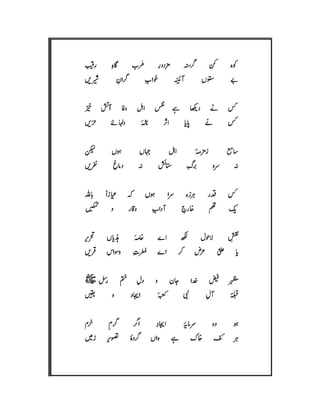 کوہ کن گرسنہ مزدور طرب گاہ رقیب
بے ستوں آئینۂ خواب گران شیریں
کس نے دیکھا ہے نفس اہل وفا آتش خیز
کس نے پایا اثر نالۂ دلہائے حزیں
سامع زمزمۂ اہل جہاں ہوں لیکن
نہ سرو برگ ستائش نہ دماغ نفریں
کس قدر ہرزہ سرا ہوں کہ عیاذاً باللہ
یک قلم خارج آداب وقار و تمکیں
نقش لاحول لکھ اے خامہ ہذیاں تحریر
یا علی عرض کر اے فطرت وسواس قریں
مظہر فیض خدا جان و دل ختم رسل ﷺ
قبلۂ آل نبی کعبۂ ایجاد و یقیں
ہو وہ سرمایۂ ایجاد اگر گرم خرم
ہر کف خاک ہے واں گردۂ تصویر زمیں